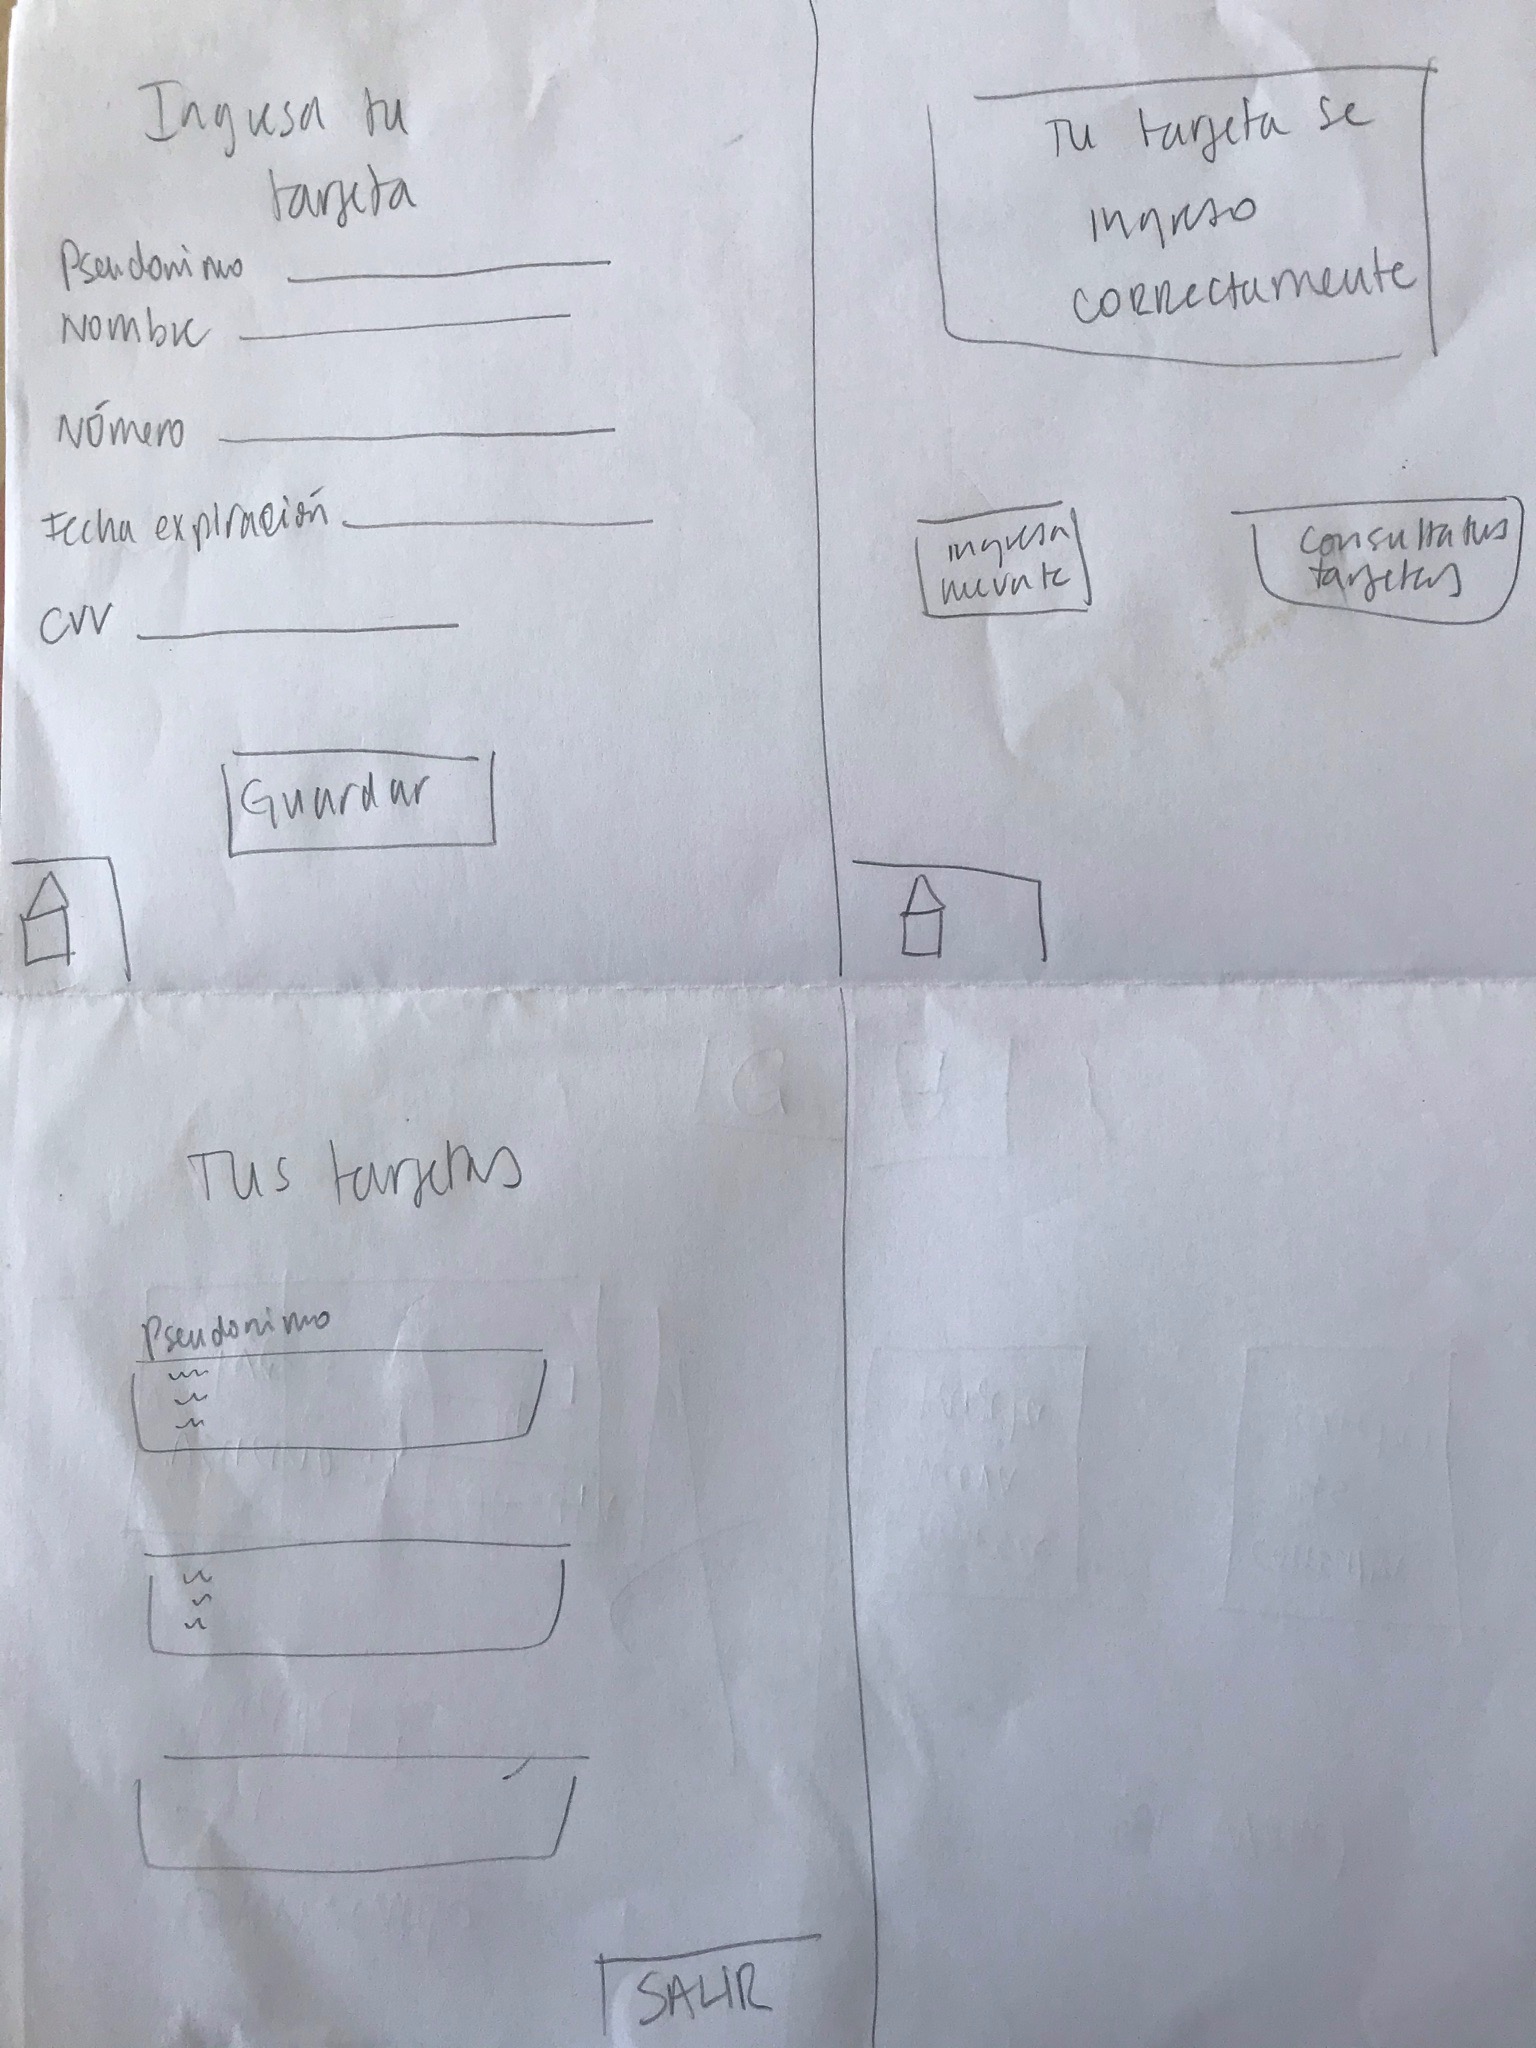 Ingresa tu
tarjeta
Pseudonimo
Nombre
Número
Fecha expiración
CVV
Guardar
Tu tarjeta se
ingreso
correctamente
ingresa
consulta tus
tarjetas
Tus tarjetas
Pseudonimo
SALIR